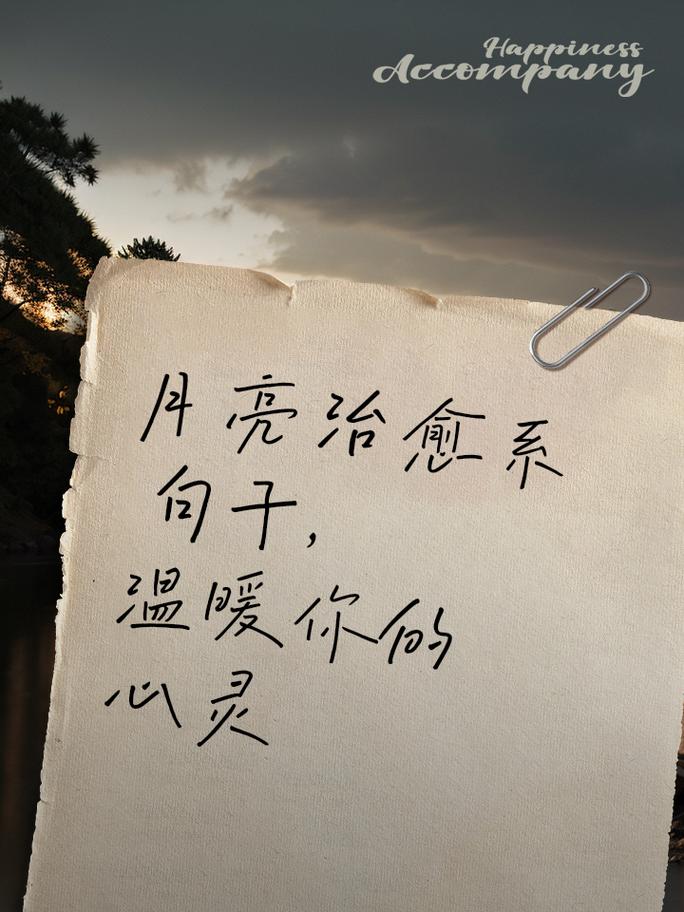 Happiness
Accompany
月亮治愈系
句子，
温暖你的
心灵